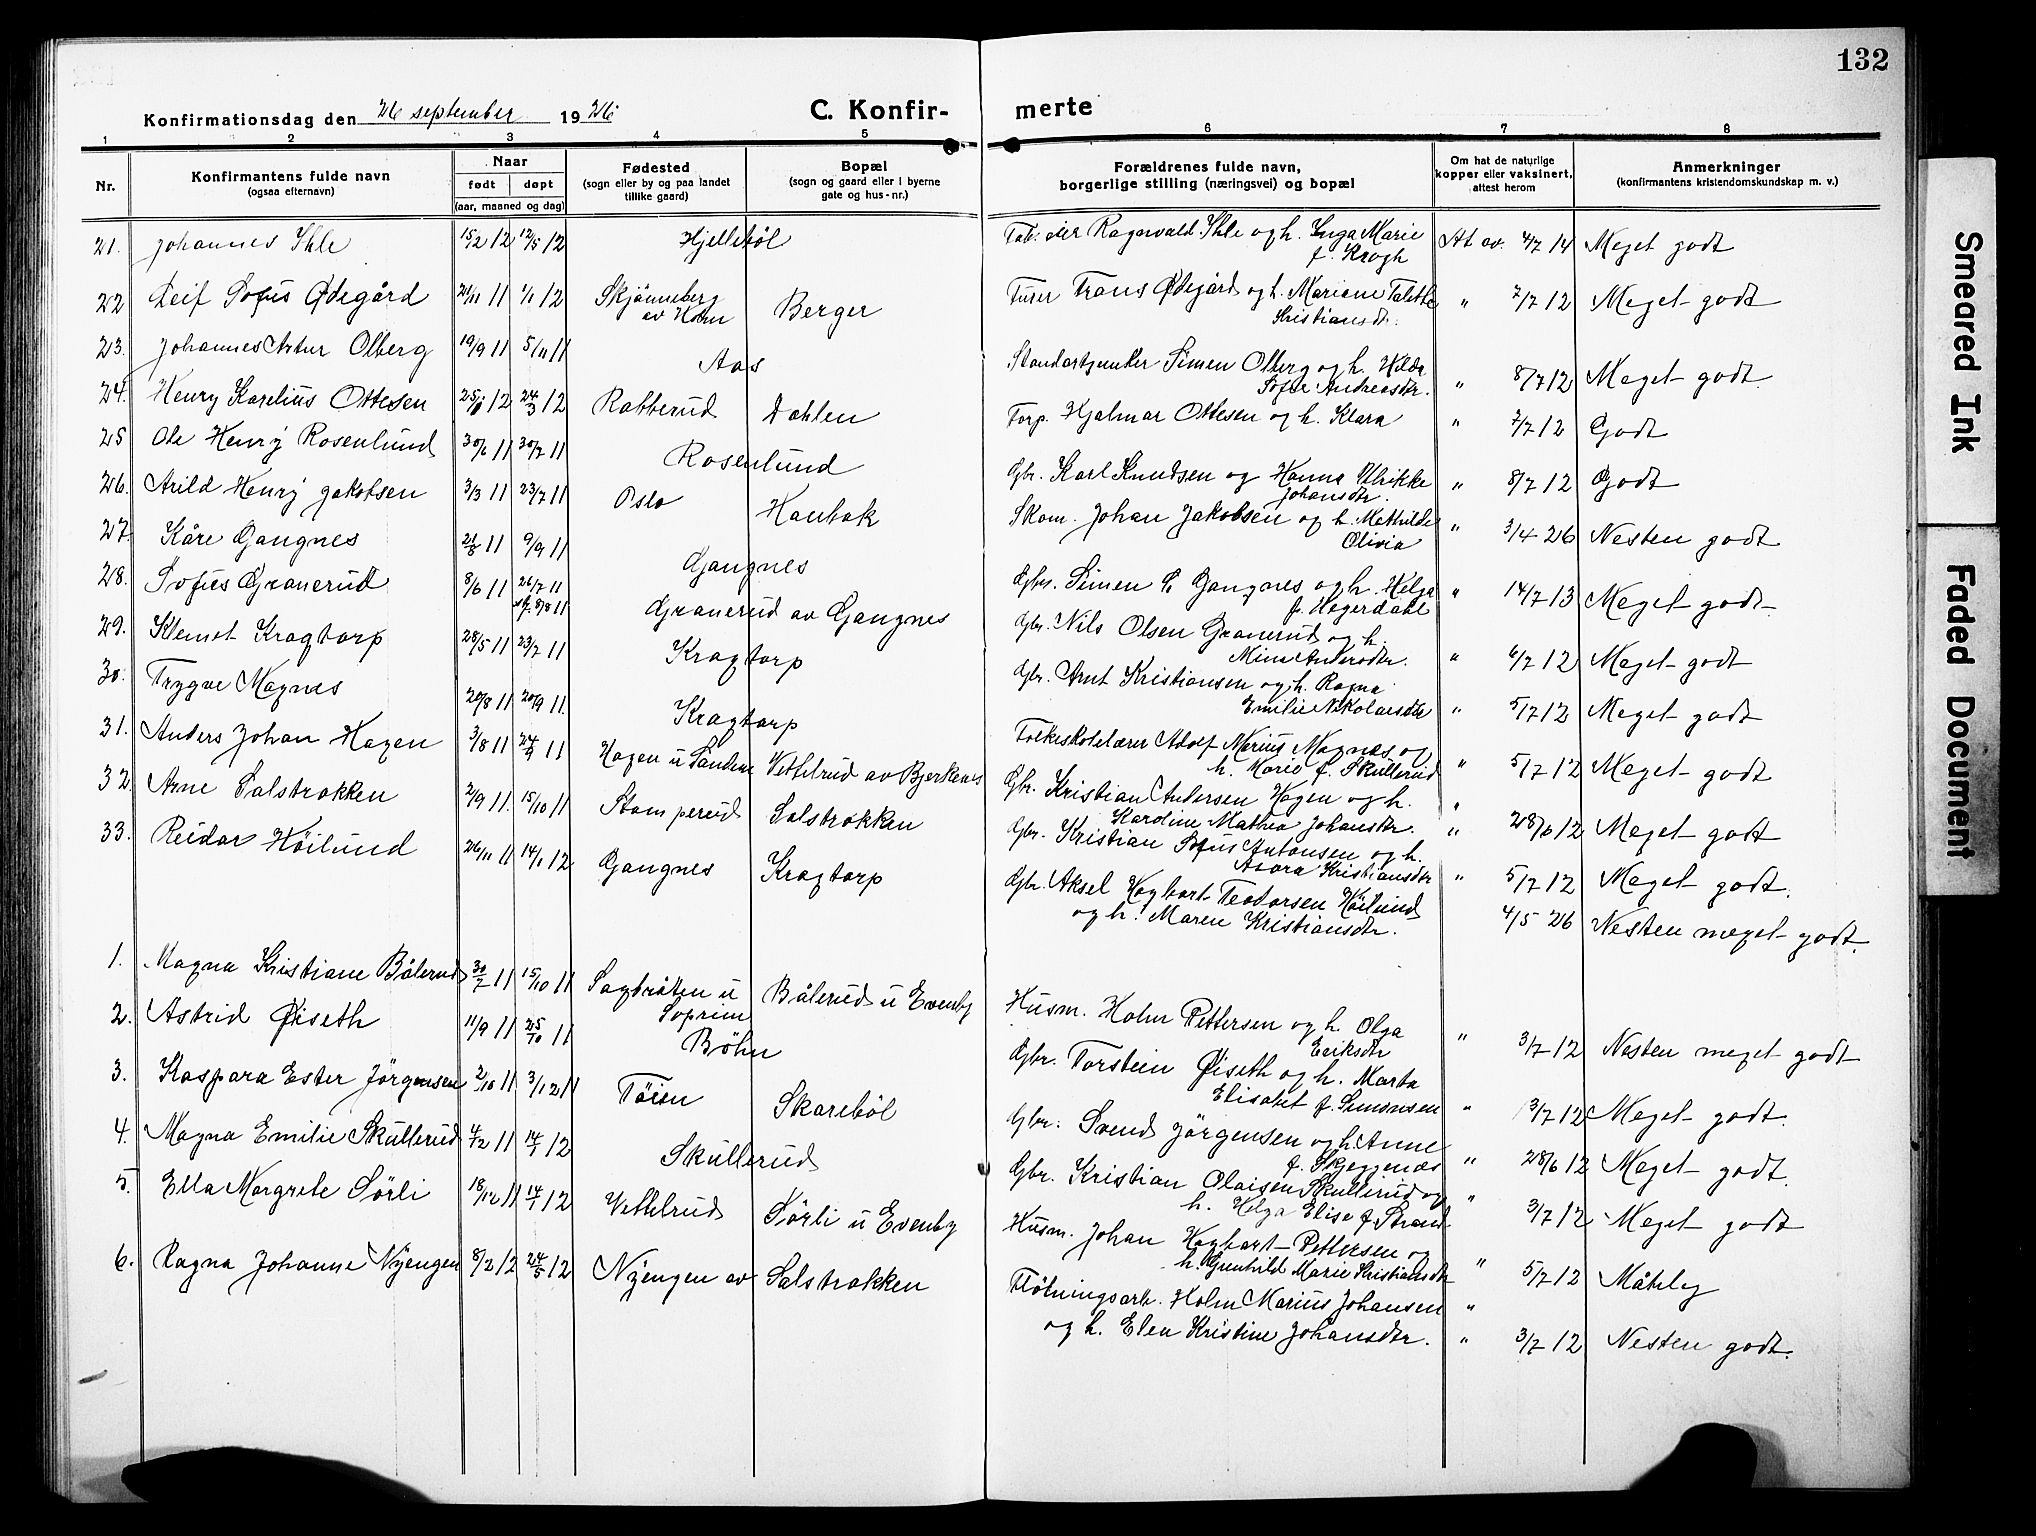 132
Konfirmationsdag den 26 september 1926
C. Konfir-
merte
1 2 3 4 5 6 7 8
Nr.
Konfirmantens fulde navn
(ogsaa efternavn)
Naar
født døpt
(aar, maaned og dag)
Fødested
(sogn eller by og paa landet
tillike gaard)
Bopæl
(sogn og gaard eller i byerne
gate og hus-nr.)
Forældrenes fulde navn,
borgerlige stilling (næringsvei) og bopæl
Om hat de naturlige
kopper eller vaksinert,
attest herom
Anmerkninger
(konfirmantens kristendomskundskap m. v.)
21. Johannes Ihle 15/2 12 12/5 12 Hjellebøl
Ragnvald Ihle og h. Inga Marie
f. Krogh
At av. 4/7 14 Meget godt
22 Leif Sofus Ødegård 21/11 11 1/1 12 Skjønneberg
Berger
Frans Ødegård og h. Mariane
Kristiansdr.
" 7/7 12 Meget godt
23. Johannes Artur Olberg 19/9 11 5/11 11 Aas
Simen Olberg og h. Hilda
Sofie Andreasdr.
" 8/7 12 Meget godt.
24. Henry Karelius Ottesen 12 24/3 12 Rakkerud Dahlen
Torp. Hjalmar Ottesen og h. Klara
" 7/7 12 Godt
25 Ole Henry Rosenlund 30/6 11 30/7 11 Rosenlund
Gbr. Karl Knudsen og Hanna Ulrikke
Johansdr.
" 8/7 12 Godt
26. Arild Henry Jakobsen 3/3 11 23/7 11 Oslo
Skom. Johan Jakobsen og h. Mathilde
Olivia
" 3/4 26 Nesten godt
27. Kåre Gangnes 11 9/9 11 Gangnes
Gbr. Simen Gangnes og h. Helga
f. Hegerdahl
" 14/7 13 Meget godt
28. Sofus Granerud 8/6 11 26/7 11
Granerud av Gangnes
Gbr. Nils Olsen Granerud og h.
Mina Andersdtr.
" 6/7 12 Meget godt
29. Klemet Kragtorp 28/5 11 23/7 11 Kragtorp
Gbr. Arnt Kristiansen og h. Ragna
Emilie Nikolaisdtr
" 5/7 12 Meget godt
30. Trygve Magnes 20/8 11 20/9 11. Kragtorp
Folkeskolelærer Adolf Marius Magnes og
h. Marie f. Skullerud
" 5/7 12 Meget godt
31. Anders Johan Hagen 3/8 11 24/9 11 Hagen u Sandem Vettebrud av Bjerkenes
Gbr. Kristian Andersen Hagen og h.
Karoline Mathea Johansdtr.
" 28/6 12 Meget godt
32. Arne Salstrokken 2/9 11. 15/10 11 Stomperud Salstrokken
Gbr. Kristian Sofus Antonsen og h.
Kristiansdtr
" 5/7 12 Meget godt.
33. Reidar Höilund 26/11 11 14/1 12 Gangnes Kragtorp
Gbr. Aksel Hagbart Teodorsen Höilund
og h. Maren Kristiansdtr.
4/5 26 Nesten meget godt.
1. Magna Kristiane Bålerud 30/7 11 15/10 11 Sagbråten u
Soprim
Bålerud u Evenby
Husm. Holm Pettersen og h. Olga
Eriksdtr
" 3/7 12 Nesten meget godt
2. Astrid Øiseth 11/9 11 25/10 11 Böhn
Gbr. Torstein Øiseth og h. Marta
Elisabet f. Simonsen
" 3/7 12 Meget godt.
3. Kaspara Ester Jörgensen 2/10 11 3/12 11 Töien Skareböl
Gbr. Svend Jörgensen og h. Anne
f. Skjeggenæs
" 28/6 12 Meget godt.
4. Magna Emilie Skullerud 4/12 11 14/1 12 Skullerud
Gbr. Kristian Olaisen Skullerud og
h. Helga Elise f. Strand
" 3/7 12 Meget godt
5. Ella Margrete Sörli 18/12 11 14/1 12 Vettebrud Sörli u Evenby
Husm. Johan Hagbart Pettersen og
h. Gunhild Marie Kristiansdtr
" 5/7 12 Måtelig
6. Ragna Johanne Nyengen 8/2 12 24/5 12 Nyengen av Salstrokken
Flötningsarb. Holm Marius Johansen
og h. Elen Kristine Johansdtr.
" 3/7 12 Nesten godt.
Smeared Ink
Faded Document